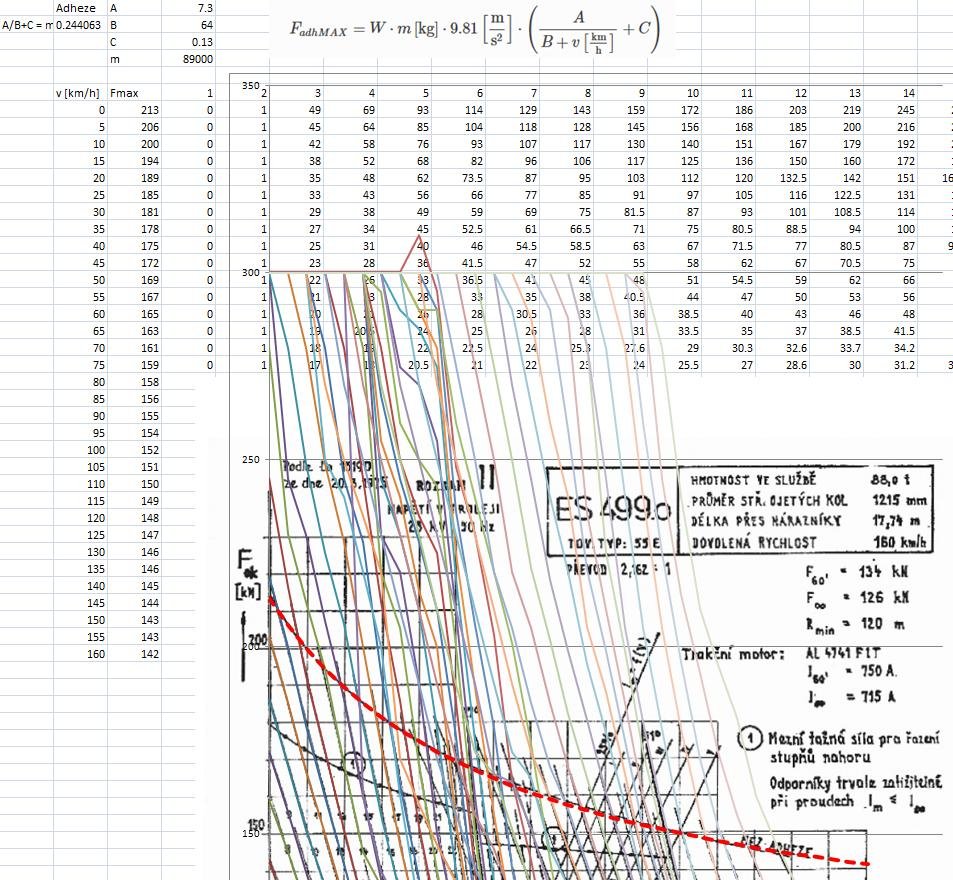 Adheze A 7.3
A/B+C = m 0.244063 B 64
C 0.13
m 89000
F_adhMAX = W · m [kg] · 9.81 [m/s²] · (A / (B + v [km/h]) + C)
350
v [km/h] Fmax 1 2 3 4 5 6 7 8 9 10 11 12 13 14
0 213 0 1 49 69 93 114 129 143 159 172 186 203 219 245
5 206 0 1 45 64 85 104 118 128 145 156 168 185 200 216
10 200 0 1 42 58 76 93 107 117 130 140 151 167 179 192
15 194 0 1 38 52 68 82 96 106 117 125 136 150 160 172
20 189 0 1 35 48 62 73.5 87 95 103 112 120 132.5 142 151
25 185 0 1 33 43 56 66 77 85 91 97 105 116 122.5 131
30 181 0 1 29 38 49 59 69 75 81.5 87 93 101 108.5 114
35 178 0 1 27 34 45 52.5 61 66.5 71 75 80.5 88.5 94 100
40 175 0 1 25 31 40 46 54.5 58.5 63 67 71.5 77 80.5 87
45 172 0 1 23 28 36 41.5 47 52 55 58 62 67 70.5 75
300
50 169 0 1 22 26 33 36.5 41 45 48 51 54.5 59 62 66
55 167 0 1 21 28 33 35 38 40.5 44 47 50 53 56
60 165 0 1 20 21 26 28 30.5 33 36 38.5 40 43 46 48
65 163 0 1 19 20.5 24 25 26 28 31 33.5 35 37 38.5 41.5
70 161 0 1 18 22 22.5 24 25.3 27.6 29 30.3 32.6 33.7 34.2
75 159 0 1 17 20.5 21 22 23 24 25.5 27 28.6 30 31.2
80 158
85 156
90 155
95 154
100 152
105 151
110 150
115 149
120 148
125 147
130 146
135 146
140 145
145 144
150 143
155 143
160 142
250
Podle
ze dne 20.3.1975
II
NAPĚTÍ V TROLEJI
25 kV 50 Hz
ES 499.0
TOV. TYP: 55 E
HMOTNOST VE SLUŽBĚ 88,0 t
PRŮMĚR STŘ. OJETÝCH KOL 1215 mm
DÉLKA PŘES NÁRAZNÍKY 17,74 m
DOVOLENÁ RYCHLOST 160 km/h
PŘEVOD 2,162 : 1
F ok
[kN]
F60' = 134 kN
F∞ = 126 kN
Rmin = 120 m
200
Trakční motor: AL 4741 F1T
I60' = 750 A.
I∞ = 715 A
1 Mezní tažná síla pro řazení
stupňů nahoru
Odporníky trvale zatížitelné
při proudech Im ≤ I∞
150
MEZ ADHEZE